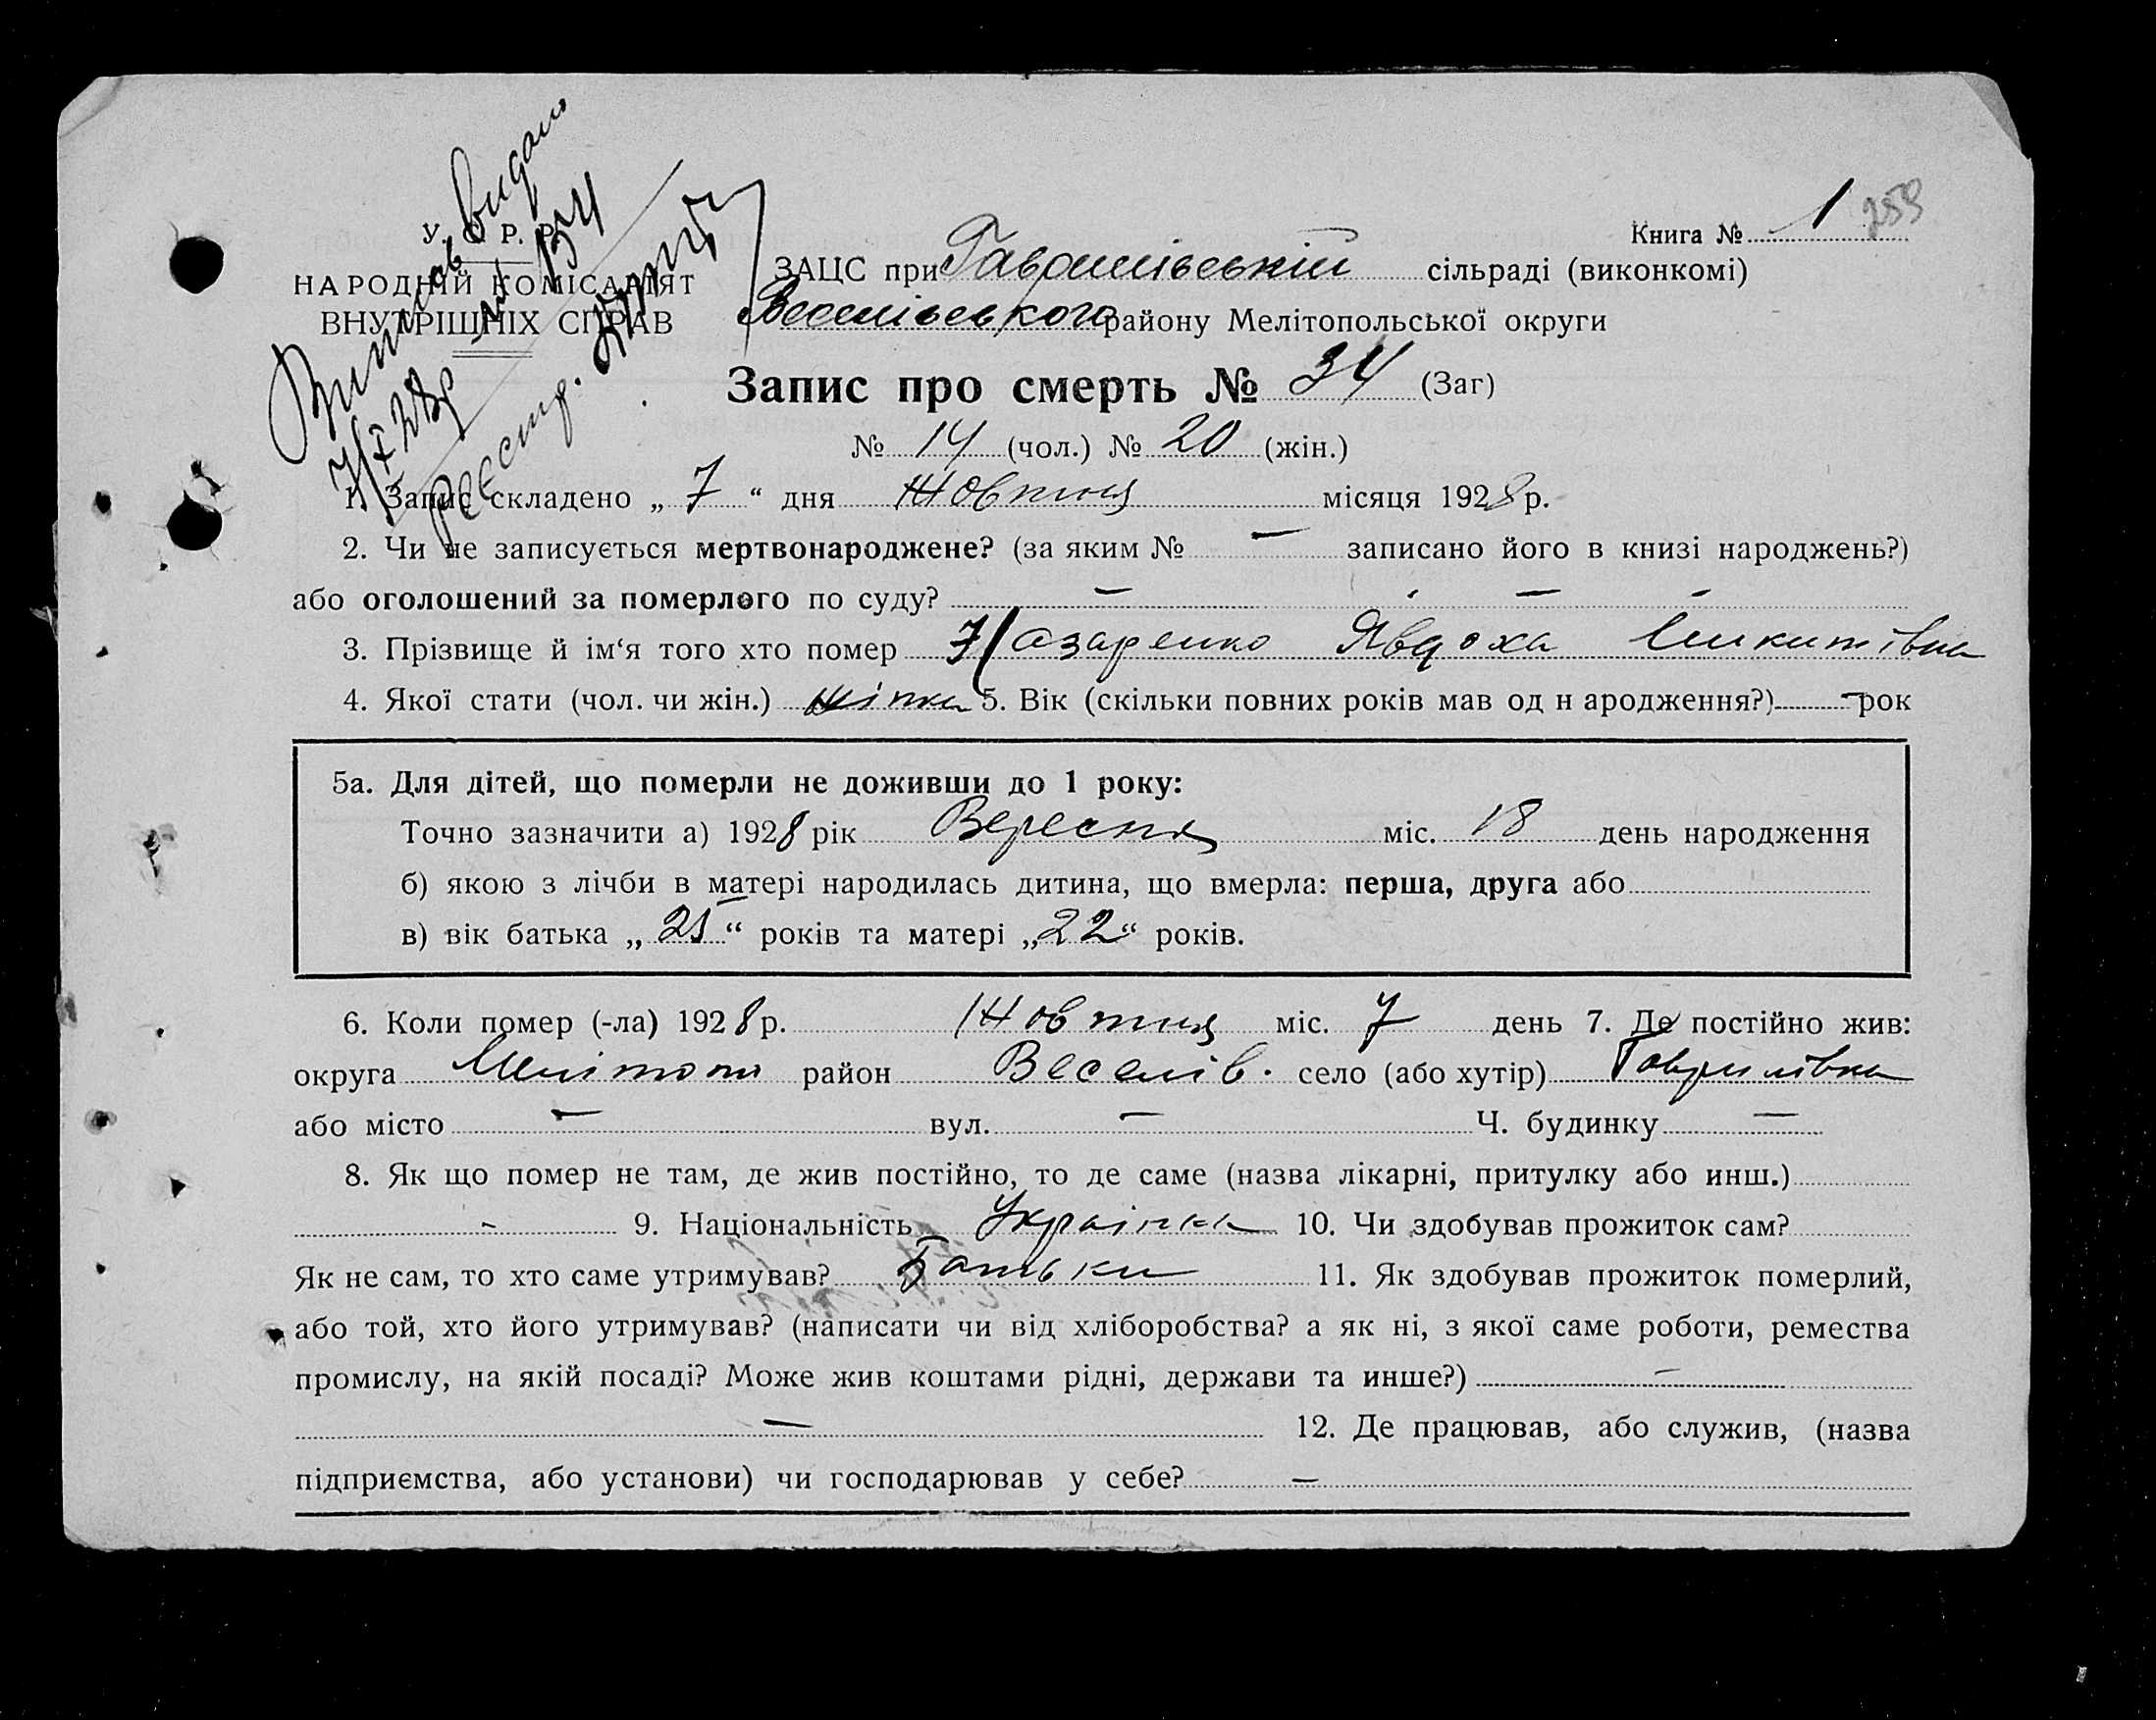 Витяг видан
7/X 28р № 134
Реєстр.
У. С. Р. Р.
НАРОДНІЙ КОМІСАРІЯТ
ВНУТРІШНІХ СПРАВ
Книга № 1 259
ЗАЦС при Гаврилівській сільраді (виконкомі)
Веселівського району Мелітопольської округи
Запис про смерть № 34 (Заг)
№ 14 (чол.) № 20 (жін.)
1. Запис складено „ 7 “ дня Жовтня місяця 1928 р.
2. Чи не записується мертвонароджене? (за яким № — записано його в книзі народжень?)
або оголошений за померлого по суду? — — -
3. Прізвище й ім‘я того хто помер Назаренко Явдоха Микитівна
4. Якої стати (чол. чи жін.) жінка 5. Вік (скільки повних років мав од н ародження?) — рок
5а. Для дітей, що померли не доживши до 1 року:
Точно зазначити а) 1928 рік Вересня міс. 18 день народження
б) якою з лічби в матері народилась дитина, що вмерла: перша, друга або
в) вік батька „ 25 “ років та матері „ 22 “ років.
6. Коли помер (-ла) 1928 р. Жовтня міс. 7 день 7. Де постійно жив:
округа Мелітоп район Веселів. село (або хутір) Гаврилівка
або місто — вул. — Ч. будинку —
8. Як що помер не там, де жив постійно, то де саме (назва лікарні, притулку або инш.)
- 9. Національність Українка 10. Чи здобував прожиток сам?
Як не сам, то хто саме утримував? Батьки 11. Як здобував прожиток померлий,
або той, хто його утримував? (написати чи від хліборобства? а як ні, з якої саме роботи, ремества
промислу, на якій посаді? Може жив коштами рідні, держави та инше?) —
— 12. Де працював, або служив, (назва
підприємства, або установи) чи господарював у себе? —